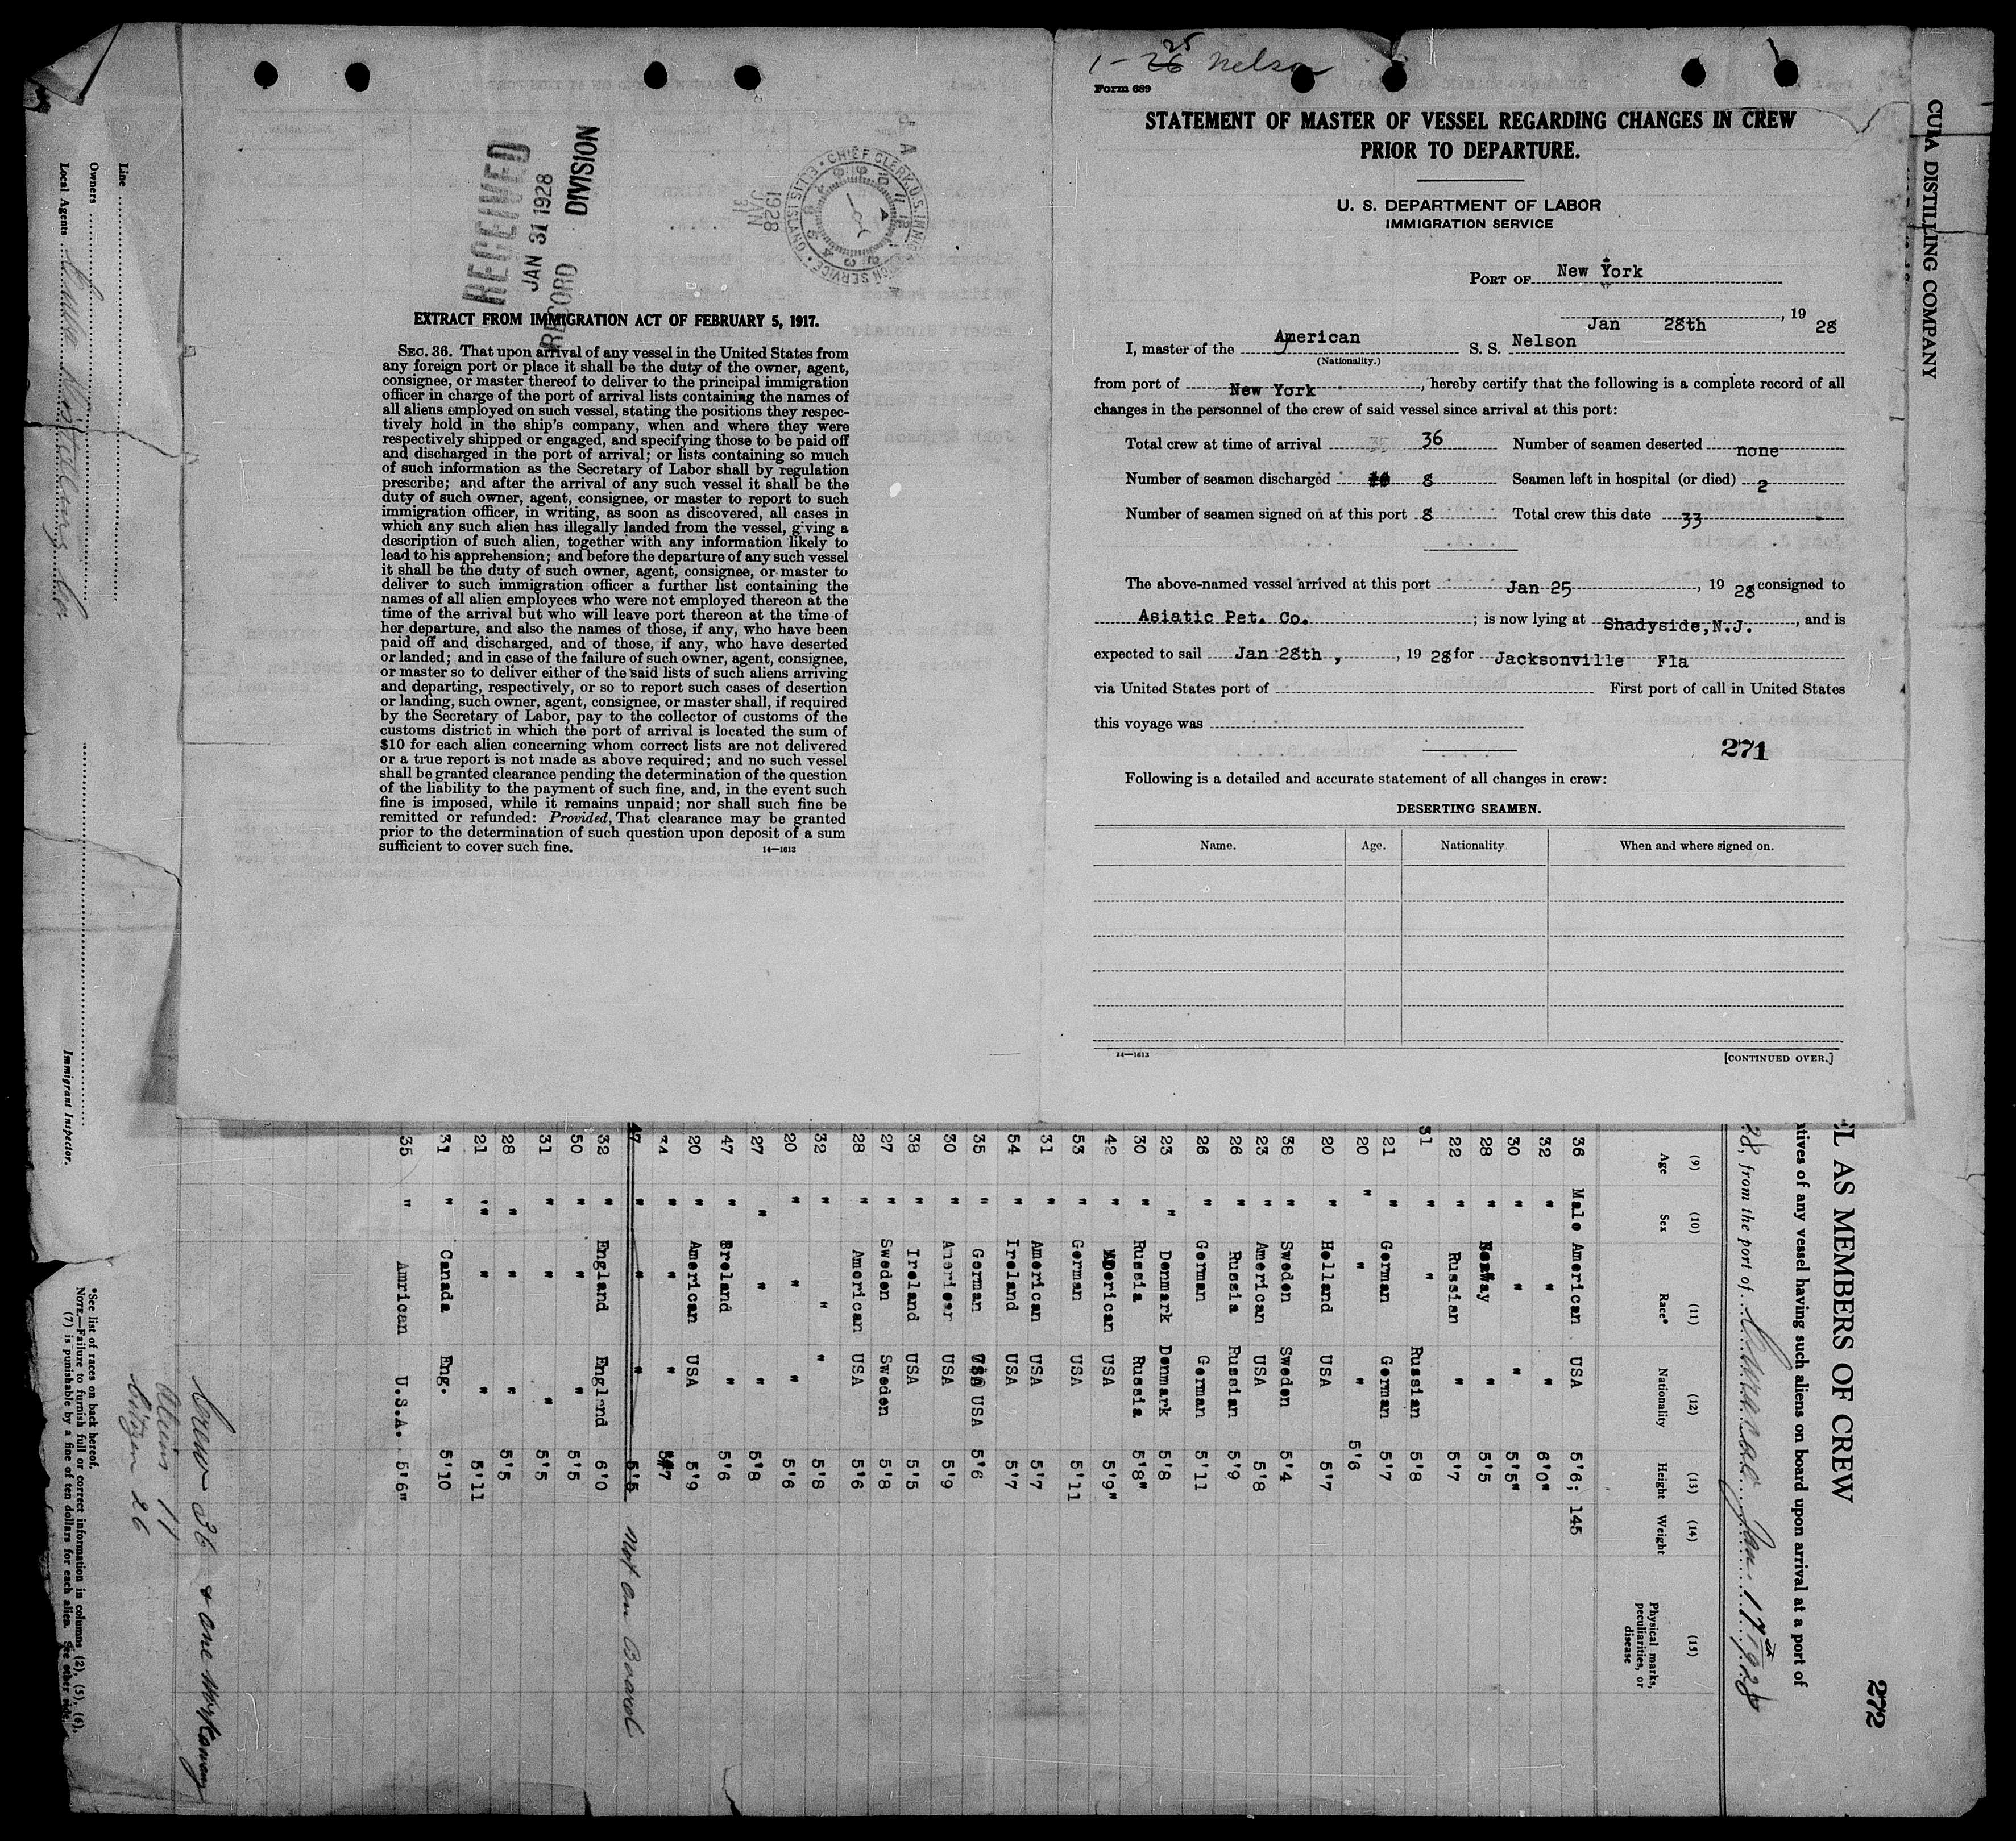 1-25 Nelson
Form 689
STATEMENT OF MASTER OF VESSEL REGARDING CHANGES IN CREW
PRIOR TO DEPARTURE.
U. S. DEPARTMENT OF LABOR
IMMIGRATION SERVICE
PORT OF New York
Jan 28th , 19 28
I, master of the American S. S. Nelson
(Nationality.)
from port of New York , hereby certify that the following is a complete record of all
changes in the personnel of the crew of said vessel since arrival at this port:
Total crew at time of arrival 36 Number of seamen deserted none
Number of seamen discharged 8 Seamen left in hospital (or died) 2
Number of seamen signed on at this port 8 Total crew this date 33
The above-named vessel arrived at this port Jan 25 , 19 28 consigned to
Asiatic Pet. Co. ; is now lying at Shadyside,N.J. , and is
expected to sail Jan 28th , , 19 28 for Jacksonville Fla
via United States port of First port of call in United States
this voyage was
271
Following is a detailed and accurate statement of all changes in crew:
DESERTING SEAMEN.
Name. Age. Nationality When and where signed on.
14—1613
[CONTINUED OVER.]
RECEIVED
JAN 31 1928
RECORD DIVISION
1928
JAN
31
CHIEF CLERK, U.S. IMMIGRATION SERVICE • ELLIS ISLAND •
EXTRACT FROM IMMIGRATION ACT OF FEBRUARY 5, 1917.
SEC. 36. That upon arrival of any vessel in the United States from
any foreign port or place it shall be the duty of the owner, agent,
consignee, or master thereof to deliver to the principal immigration
officer in charge of the port of arrival lists containing the names of
all aliens employed on such vessel, stating the positions they respec-
tively hold in the ship's company, when and where they were
respectively shipped or engaged, and specifying those to be paid off
and discharged in the port of arrival; or lists containing so much
of such information as the Secretary of Labor shall by regulation
prescribe; and after the arrival of any such vessel it shall be the
duty of such owner, agent, consignee, or master to report to such
immigration officer, in writing, as soon as discovered, all cases in
which any such alien has illegally landed from the vessel, giving a
description of such alien, together with any information likely to
lead to his apprehension; and before the departure of any such vessel
it shall be the duty of such owner, agent, consignee, or master to
deliver to such immigration officer a further list containing the
names of all alien employees who were not employed thereon at the
time of the arrival but who will leave port thereon at the time of
her departure, and also the names of those, if any, who have been
paid off and discharged, and of those, if any, who have deserted
or landed; and in case of the failure of such owner, agent, consignee,
or master so to deliver either of the said lists of such aliens arriving
and departing, respectively, or so to report such cases of desertion
or landing, such owner, agent, consignee, or master shall, if required
by the Secretary of Labor, pay to the collector of customs of the
customs district in which the port of arrival is located the sum of
$10 for each alien concerning whom correct lists are not delivered
or a true report is not made as above required; and no such vessel
shall be granted clearance pending the determination of the question
of the liability to the payment of such fine, and, in the event such
fine is imposed, while it remains unpaid; nor shall such fine be
remitted or refunded: Provided, That clearance may be granted
prior to the determination of such question upon deposit of a sum
sufficient to cover such fine.
14—1613
CUBA DISTILLING COMPANY
272
L AS MEMBERS OF CREW
atives of any vessel having such aliens on board upon arrival at a port of
28, from the port of Jan 17th 1928
(9) (10) (11) (12) (13) (14) (15)
Age Sex Race* Nationality Height Weight Physical marks, peculiarities, or disease
36 Male American USA 5'6; 145
32 " " " 6'0"
30 " " " 5'5"
28 " Norway " 5'5
22 " Russian " 5'7
31 " " Russian 5'8
21 " German German 5'7
20 " " " 5'6
20 " Holland USA 5'7
38 " Sweden Sweden 5'4
23 " American USA 5'8
26 " Russia Russian 5'9
26 " German German 5'11
23 " Denmark Denmark 5'8
30 " Russia Russia 5'8"
42 " American USA 5'9"
53 " German USA 5'11
31 " American USA 5'7
54 " Ireland USA 5'7
35 " German USA 5'6
30 " American USA 5'9
38 " Ireland USA 5'5
27 " Sweden Sweden 5'8
28 " American USA 5'6
32 " " " 5'8
20 " " " 5'6
27 " " " 5'8
47 " Ireland " 5'6
20 " American USA 5'9
34 " " " 5'7
47 " " " 5'5 Not on Board
32 " England England 6'0
50 " " " 5'5
31 " " " 5'5
28 " " " 5'5
21 " " " 5'11
31 " Canada Eng. 5'10
35 " Amrican U.S.A. 5'6"
Crew 36 & one workaway
Aliens 11
Citizen 26
*See list of races on back hereof.
NOTE.—Failure to furnish full or correct information in columns (2), (5), (6),
(7) is punishable by a fine of ten dollars for each alien. See other side.
Line
Owners
Local Agents Cuba Distilling Co
Immigrant Inspector.